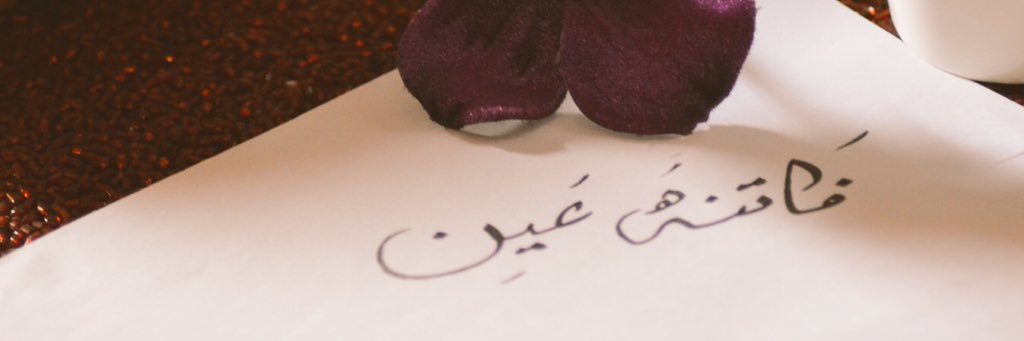 فَاتنهَ عَينِ